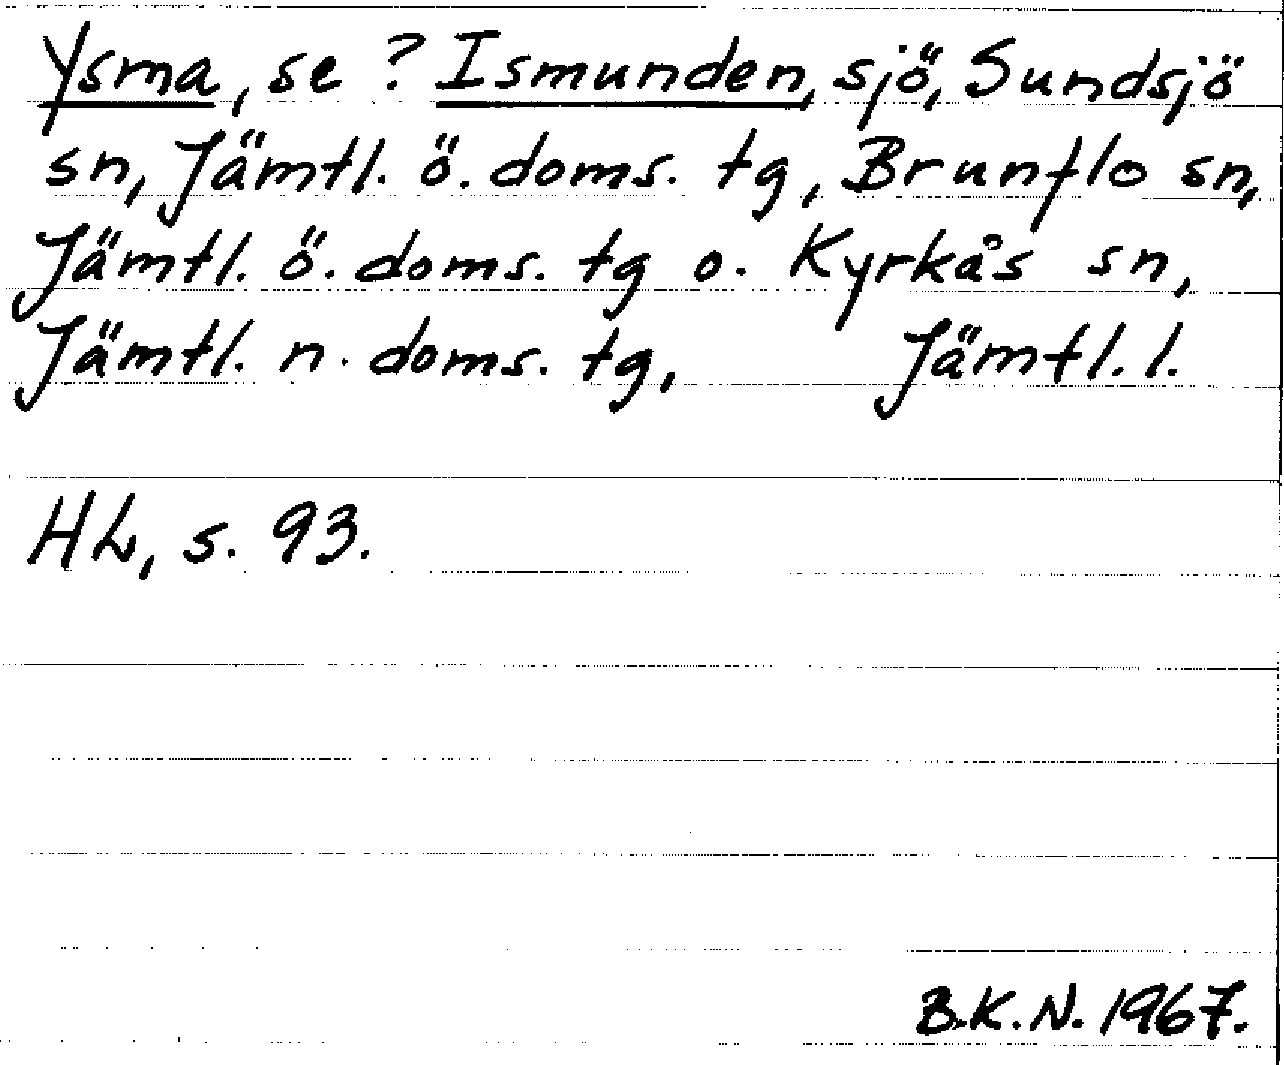 Ysma, se ? Ismunden, sjö, Sundsjö
sn, Jämtl. ö. doms. tg, Brunflo sn,
Jämtl. ö. doms. tg o. Kyrkås sn,
Jämtl. n. doms. tg, Jämtl. l.
HL, s. 93.
B.K.N. 1967.